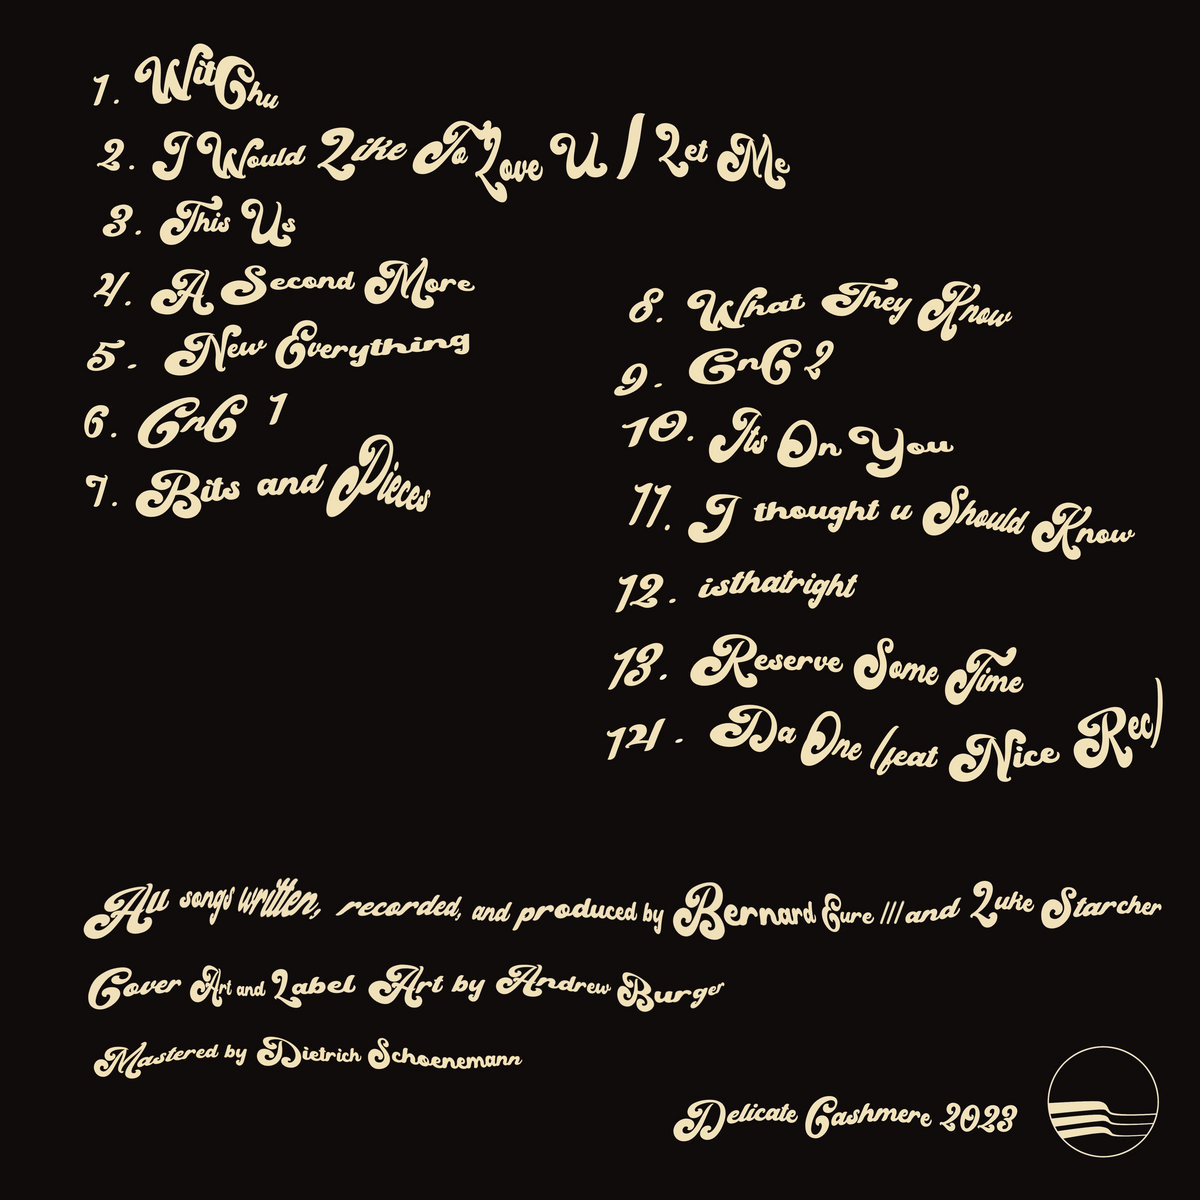 1. WitChu
2. I Would Like To Love U / Let Me
3. This Us
4. A Second More
5. New Everything
6. CnC 1
7. Bits and Pieces
8. What They Know
9. CnC 2
10. Its On You
11. I thought u Should Know
12. isthatright
13. Reserve Some Time
14. Da One (feat Nice Rec)
All songs written, recorded, and produced by Bernard Eure /// and Luke Starcher
Cover Art and Label Art by Andrew Burger
Mastered by Dietrich Schoenemann
Delicate Cashmere 2023